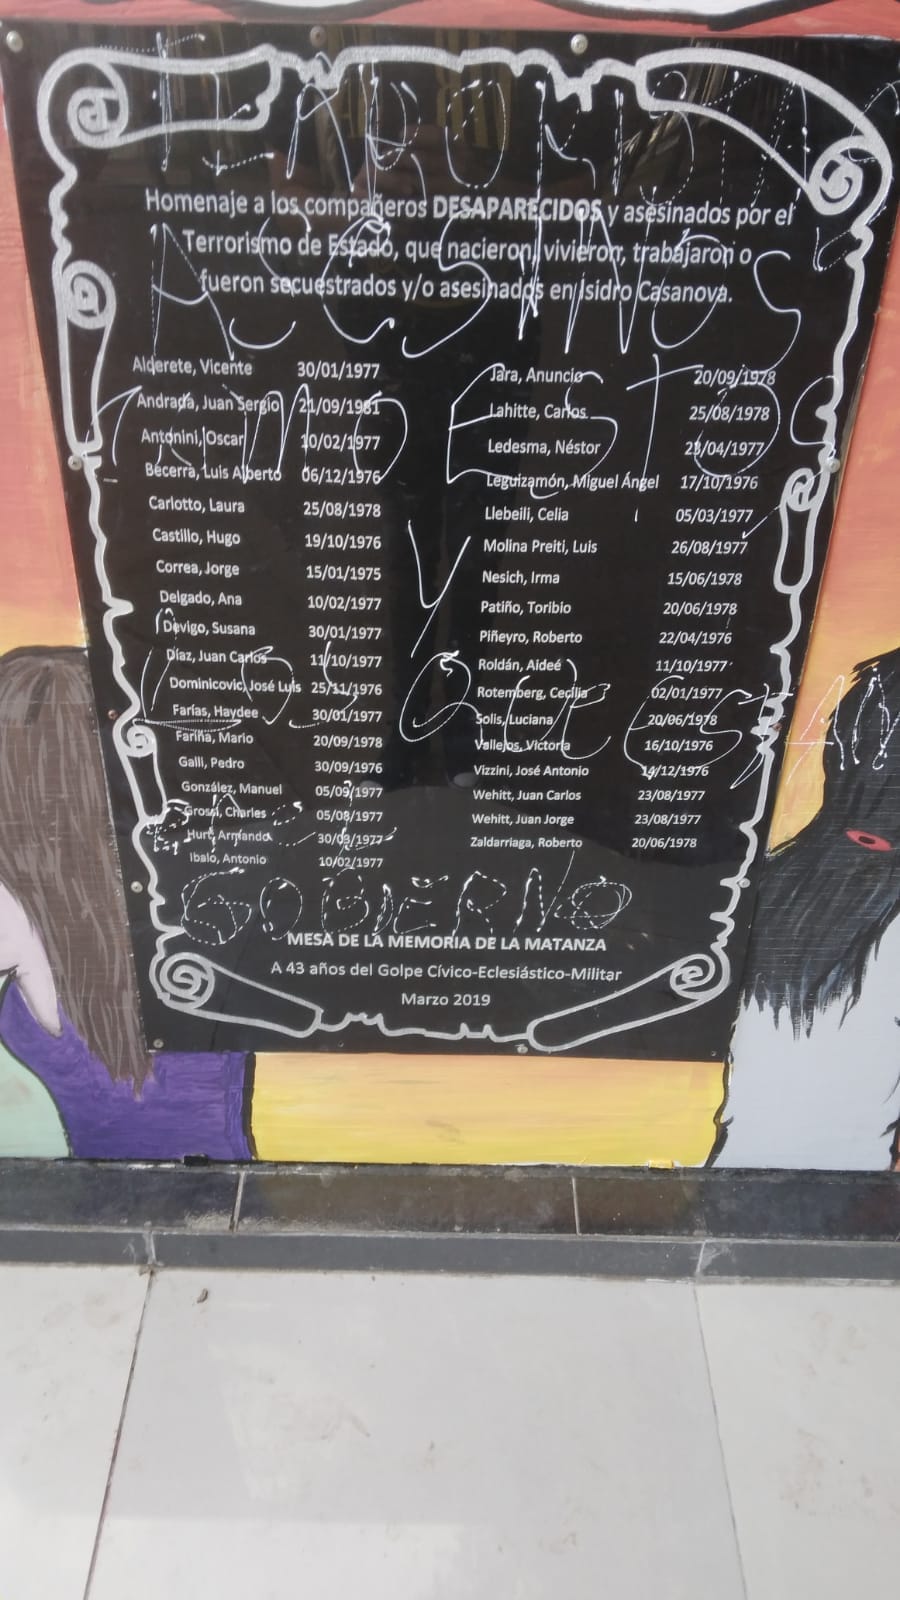 Homenaje a los compañeros DESAPARECIDOS y asesinados por el
Terrorismo de Estado, que nacieron, vivieron, trabajaron o
fueron secuestrados y/o asesinados en Isidro Casanova.
Alderete, Vicente 30/01/1977
Andrada, Juan Sergio 21/09/1981
Antonini, Oscar 10/02/1977
Becerra, Luis Alberto 06/12/1976
Carlotto, Laura 25/08/1978
Castillo, Hugo 19/10/1976
Correa, Jorge 15/01/1975
Delgado, Ana 10/02/1977
Devigo, Susana 30/01/1977
Díaz, Juan Carlos 11/10/1977
Dominicovic, José Luis 25/11/1976
Farías, Haydee 30/01/1977
Fariña, Mario 20/09/1978
Galli, Pedro 30/09/1976
González, Manuel 05/09/1977
Grossi, Charles 05/08/1977
Hurt, Armando 30/03/1977
Ibalo, Antonio 10/02/1977
Jara, Anuncio 20/09/1978
Lahitte, Carlos 25/08/1978
Ledesma, Néstor 23/04/1977
Leguizamón, Miguel Ángel 17/10/1976
Llebeili, Celia 05/03/1977
Molina Preiti, Luis 26/08/1977
Nesich, Irma 15/06/1978
Patiño, Toribio 20/06/1978
Piñeyro, Roberto 22/04/1976
Roldán, Aideé 11/10/1977
Rotemberg, Cecilia 02/01/1977
Solis, Luciana 20/06/1978
Vallejos, Victoria 16/10/1976
Vizzini, José Antonio 14/12/1976
Wehitt, Juan Carlos 23/08/1977
Wehitt, Juan Jorge 23/08/1977
Zaldarriaga, Roberto 20/06/1978
MESA DE LA MEMORIA DE LA MATANZA
A 43 años del Golpe Cívico-Eclesiástico-Militar
Marzo 2019
ASESINOS
Y
QUE ESTAN
GOBIERNO